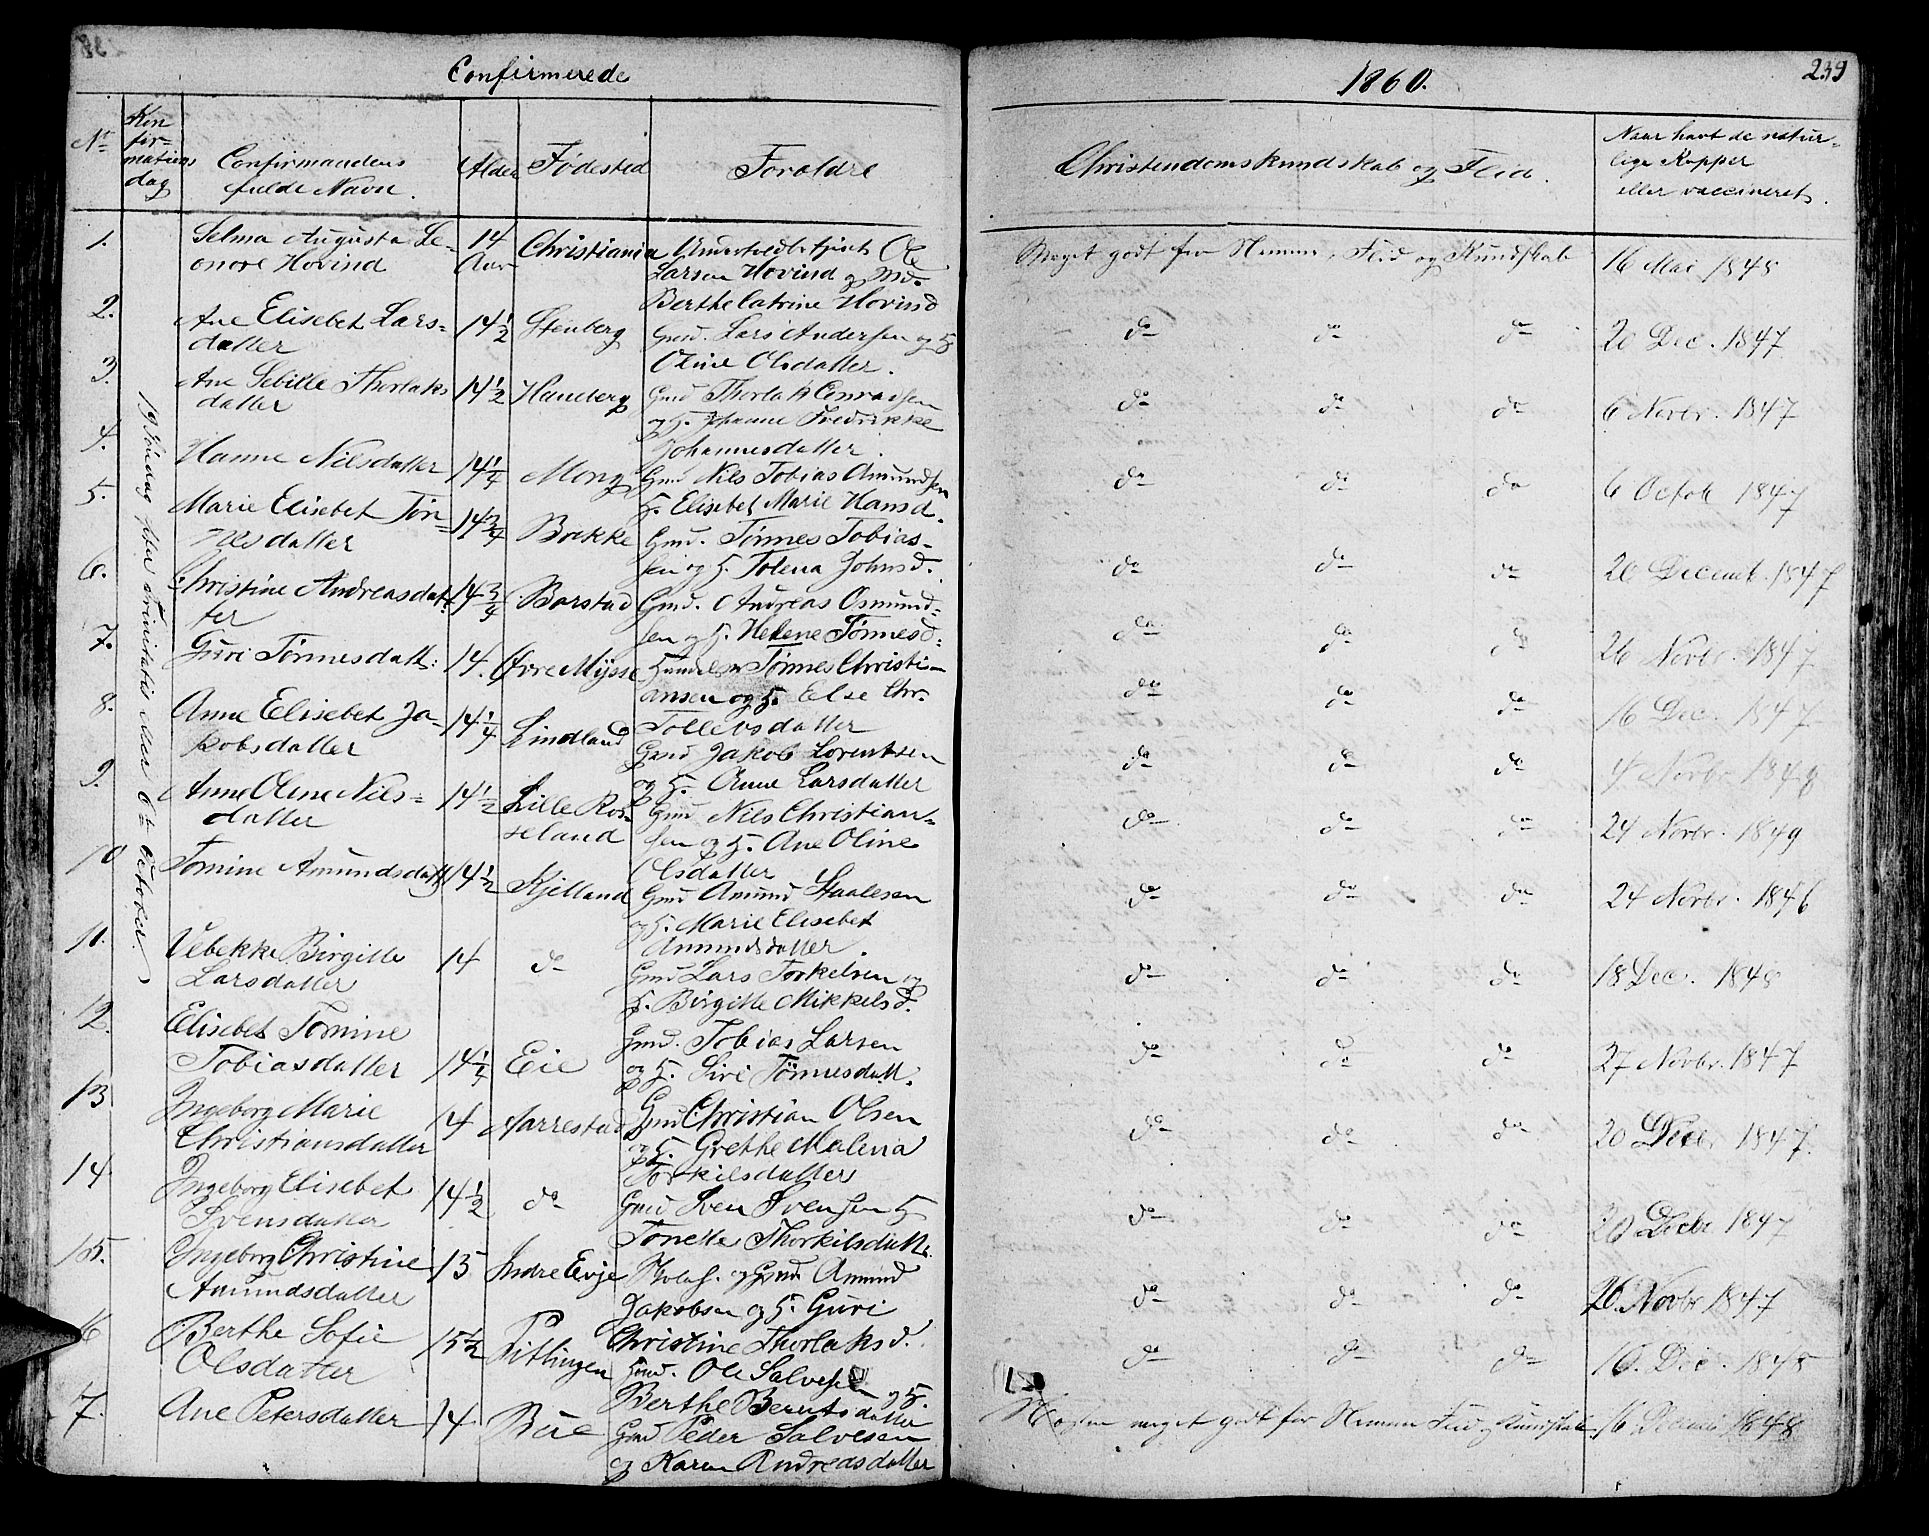 Confirmerede
1860.
239
No
Kon
fir=
mations
dag
Confirmandens
fulde Navn.
Alder
Fødested
Foroldre
Christendomskundskab og Flid.
Naar havt de natur-
lige Kopper
eller vaccineret.
19 Søndag efter Trinitatis den 6te October.
1.
Selma Augusta Le-
onore Hovind
14
Aar
Christiania
Ole
Larsen Hovind og Md.
Berthe Catrine Hovind
Meget godt for Nemme, Flid og Kundskab
16 Mai 1848
2.
Ane Elisebet Lars=
datter
14 1/2
Stenberg
Gmd. Lars Andersen og H
Oline Olsdatter.
do do do
20 Dec. 1847
3.
Ane Sebille Thorlaks
datter
14 1/2
Haneberg
Gmd Thorlak Conradsen
og H. Johanne Fredrikke
Johannesdatter.
do do do
6 Novbr. 1847
4.
Hanne Nilsdatter
14 1/4
Mong
Gmd Nils Tobias Amundsen
H. Elisebet Marie Hansd.
do do do
6 Octob 1847
5.
Marie Elisebet Tøn-
nesdatter
14 3/4
Brekke
Gmd. Tønnes Tobias-
sen og H. Tolena Johnsd.
do do do
20 Decemb. 1847
6.
Christine Andreasdat-
ter
14 3/4
Barstad
Gmd. Andreas Osmund-
sen og H. Helene Tønnesd.
do do do
26 Novbr. 1847
7.
Guri Tønnesdatt:
14.
Øvre Mysse
Tønnes Christi-
ansen og H. Else Chr.
Tollevsdatter
do do do
16 Dec. 1847
8.
Anne Elisebet Ja-
kobsdatter
14 1/4
Lindland
Gmd Jakob Lorentsen
og H. Anne Larsdatter
do do do
4 Novbr 1848
9.
Anne Oline Nils=
datter
14 1/2
Lille Ros-
seland
Gmd Nils Christian-
sen og H. Ane Oline
Olsdatter
do do do
24 Novbr. 1849
10
Tomine Amundsdatt
14 1/2
Kjelland
Gmd Amund Staalesen
og H. Marie Elisebet
Amundsdatter.
do do do
24 Novbr. 1846
11.
Vebekke Birgitte
Larsdatter
14
do
Gmd Lars Torkelsen og
H. Birgitte Mikkelsd.
do do do
18 Dec. 1848
12.
Elisebet Tomine
Tobiasdatter
14 1/4
Eie
Gmd. Tobias Larsen
og H. Siri Tønnesdatt.
do do do
27 Novbr. 1847
13
Ingeborg Marie
Christiansdatter
14
Aarrestad
Gmd. Christian Olsen
og H. Grethe Malena
Torkilsdatter
do do do
20 Decbr 1847.
14
Ingeborg Elisebet
Svensdatter
14 1/2
do
Gmd Sven Svensen H
Tonette Thorkilsdatt.
do do do
20 Decbr 1847
15.
Ingeborg Christine
Amundsdatter
15
Indre Evje
og Gmd Amund
Jakobsen og H. Guri
Christine Thorlaksd.
do do do
26. Novbr 1847
16
Berthe Sofie
Olsdatter
15 1/2
Pitlingen
Gmd. Ole Salvesen
og H.
Berthe Berntsdatter
do do do
16. Dec. 1848
17.
Ane Petersdatter
14
Bøe
Gmd Peder Salvesen
og Karen Andreasdatter
Nogen meget godt for Nemme Flid og Kundskab
16 Decmb 1848